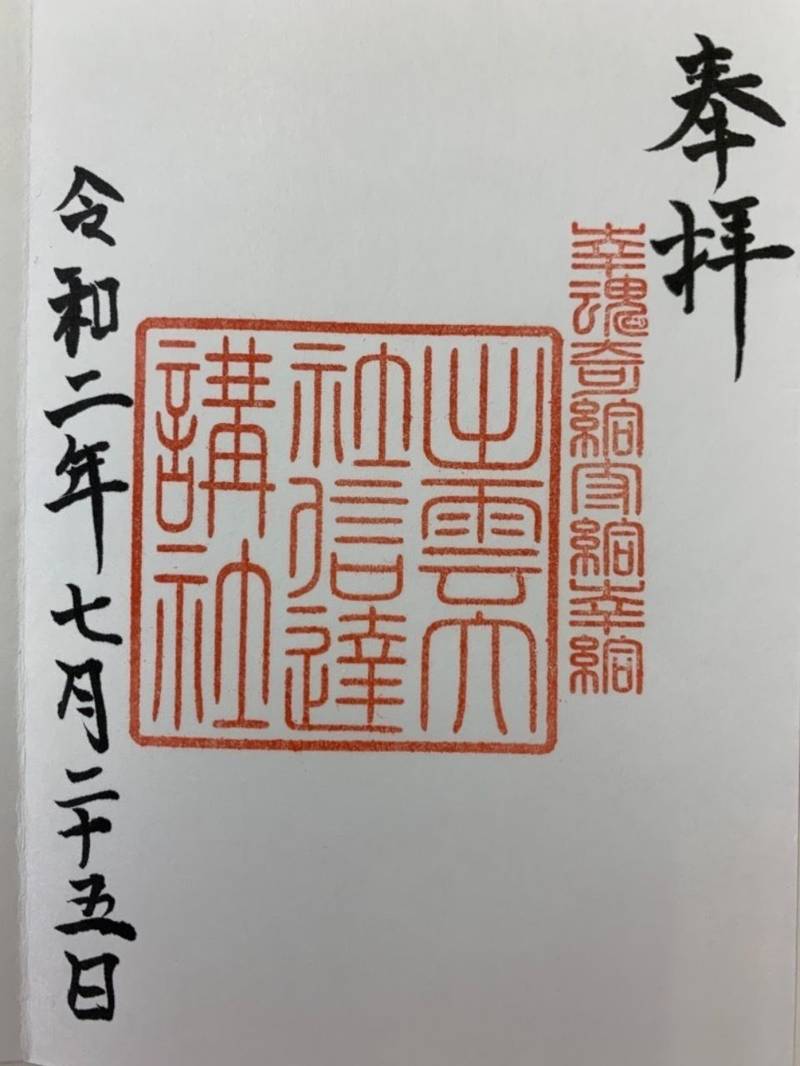 奉拝
幸魂奇給守給幸給
出雲大
社信達
講社
令和二年七月二十五日